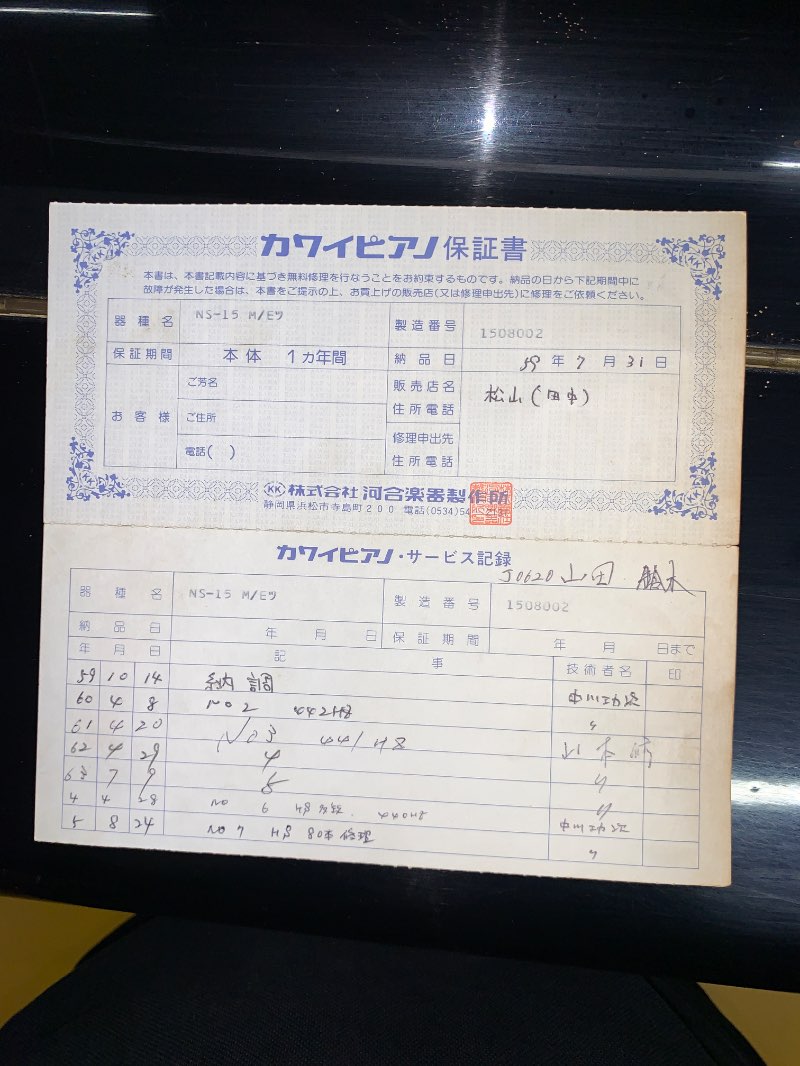 カワイピアノ 保証書
本書は、本書記載内容に基づき無料修理を行なうことをお約束するものです。納品の日から下記期間中に
故障が発生した場合は、本書をご提示の上、お買上げの販売店(又は修理申出先)に修理をご依頼ください。
器種名 NS-15 M/Eツ 製造番号 1508002
保証期間 本体 1ヵ年間 納品日 59年7月31日
お客様 ご芳名 販売店名 松山(田中)
ご住所 住所電話
修理申出先
電話( ) 住所電話
KK 株式会社 河合楽器製作所
静岡県浜松市寺島町200 電話(0534)54
カワイピアノ・サービス記録
J0620 山田
器種名 NS-15 M/Eツ 製造番号 1508002
納品日 年 月 日 保証期間 年 月 日まで
年 月 日 記事 技術者名 印
59 10 14 納調 中川
60 4 8 NO2 442HZ 〃
61 4 20 NO3 441HZ 山本
62 4 29 4 〃
63 7 9 5 〃
4 4 28 NO 6 440HZ 中川
5 8 24 NO 7 80本 修理 〃